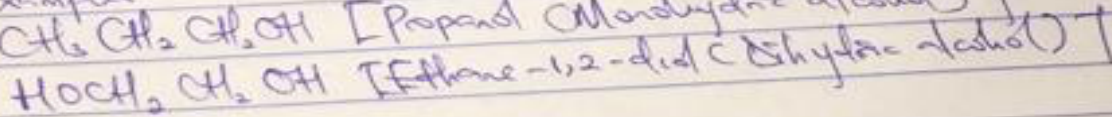 CH₃ CH₂ CH₂OH [Propanol (Monohydric alcohol)]
HOCH₂ CH₂ OH [Ethane-1,2-diol (Dihydric alcohol)]